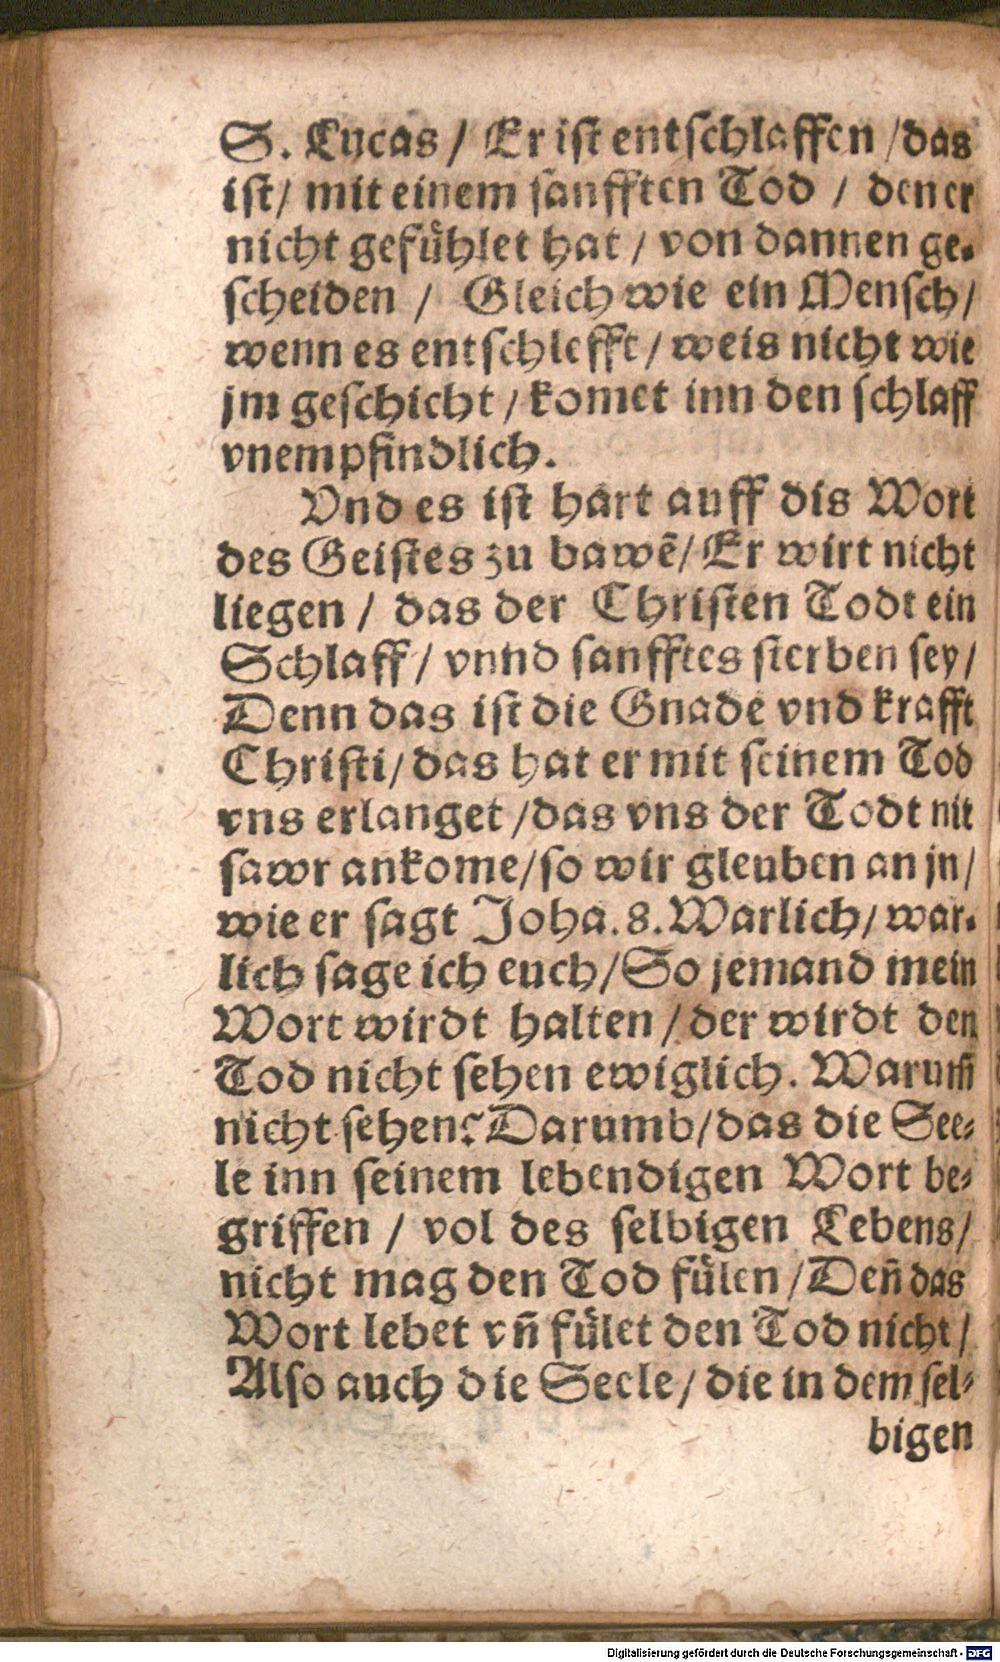 S. Lucas / Er ist entschlaffen / das
ist / mit einem sanfften Tod / den er
nicht gefühlet hat / von dannen ge-
scheiden / Gleich wie ein Mensch /
wenn es entschlefft / weis nicht wie
jm geschicht / komet inn den schlaff
vnempfindlich.
Vnd es ist hart auff dis Wort
des Geistes zu bawẽ / Er wirt nicht
liegen / das der Christen Todt ein
Schlaff / vnnd sanfftes sterben sey /
Denn das ist die Gnade vnd krafft
Christi / das hat er mit seinem Tod
vns erlanget / das vns der Todt nit
sawr ankome / so wir gleuben an jn /
wie er sagt Joha. 8. Warlich / war-
lich sage ich euch / So jemand mein
Wort wirdt halten / der wirdt den
Tod nicht sehen ewiglich. Warum̃
nicht sehen? Darumb / das die See-
le inn seinem lebendigen Wort be-
griffen / vol des selbigen Lebens /
nicht mag den Tod fülen / Deñ das
Wort lebet vñ fület den Tod nicht /
Also auch die Seele / die in dem sel-
bigen
Digitalisierung gefördert durch die Deutsche Forschungsgemeinschaft - DFG